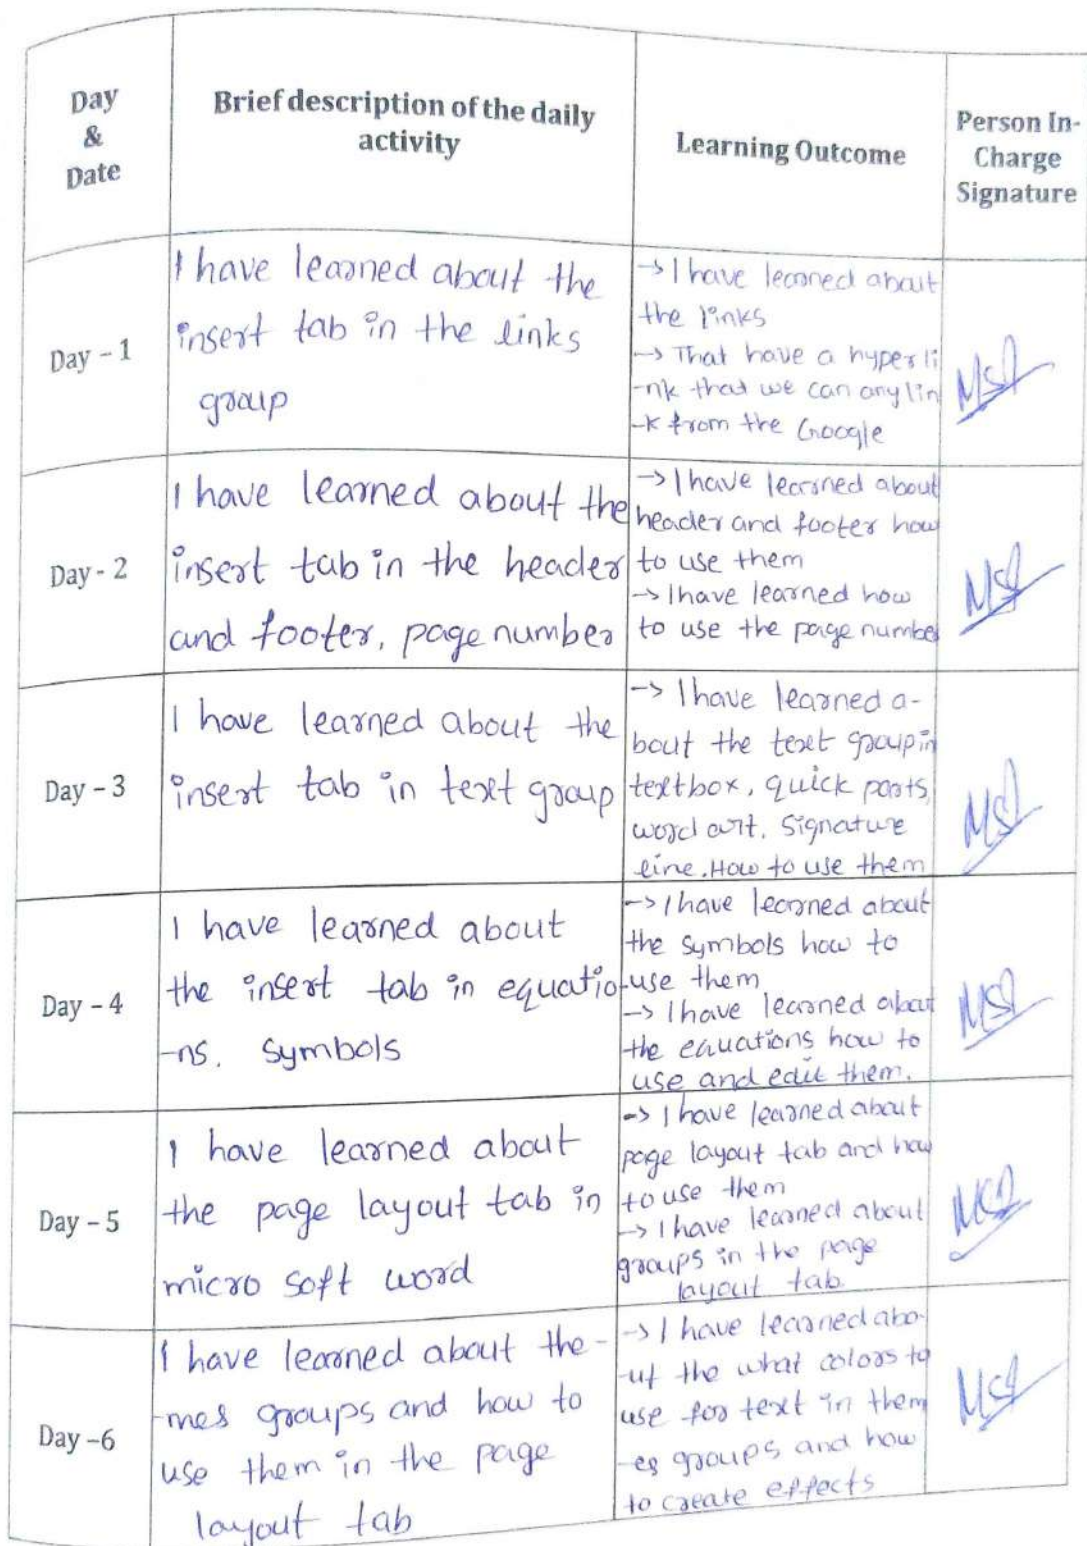 Day
&
Date
Brief description of the daily
activity
Learning Outcome
Person In-
Charge
Signature
Day - 1
I have learned about the
insert tab in the links
group
-> I have learned about
the links
-> That have a hyperli
-nk that we can any lin
-k from the Google
Day - 2
I have learned about the
insert tab in the header
and footer, page number
-> I have learned about
header and footer how
to use them
-> I have learned how
to use the page number
Day - 3
I have learned about the
insert tab in text group
-> I have learned a-
bout the text group in
textbox, quick parts,
word art. Signature
line. How to use them
Day - 4
I have learned about
the insert tab in equatio
-ns. Symbols
-> I have learned about
the symbols how to
use them
-> I have learned about
the equations how to
use and edit them.
Day - 5
I have learned about
the page layout tab in
micro soft word
-> I have learned about
page layout tab and how
to use them
-> I have learned about
groups in the page
layout tab
Day -6
I have learned about the-
-mes groups and how to
use them in the page
layout tab
-> I have learned abo-
-ut the what colors to
use for text in them
-es groups and how
to create effects